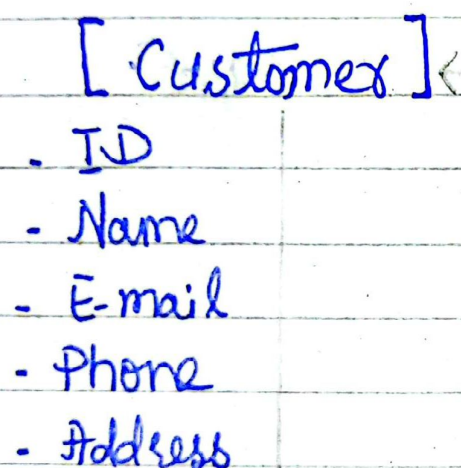 [Customer]
- ID
- Name
- E-mail
- Phone
- Address